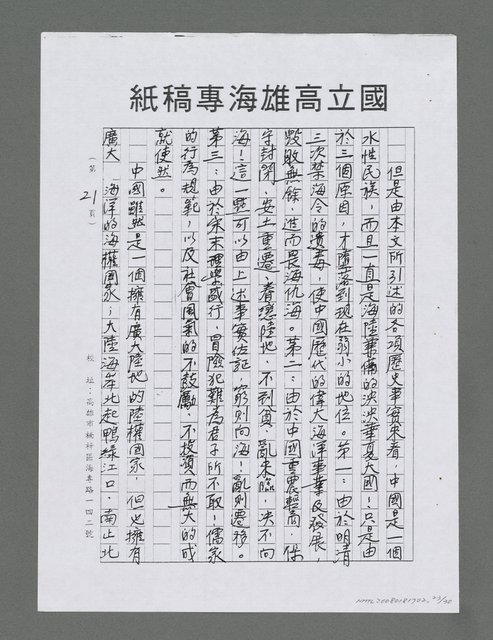 國立高雄海專稿紙
但是由本文所引述的各項歷史事實來看,中國是一個
水性民族,而且一直是海陸兼備的泱泱華夏大國!只是由
於三個原因,才墮落到現在弱小的地位。第一:由於明清
三次禁海令的遺毒,使中國歷代的偉大海洋事業及發展,
毀敗無餘,進而畏海仇海。第二:由於中國重農輕商,保
守封閉、安土重遷、眷戀陸地,不到貧、亂來臨,決不向
海!這一點可以由上述事實佐記 窮則向海!亂則遷移。
第三:由於宋末理學盛行,冒險犯難為君子所不取!儒家
的行為規範,以及社會風氣的不鼓勵、不投資而無大的成
就使然。
中國雖然是一個擁有廣大陸地的陸權國家,但也擁有
廣大 海洋的海權國家;大陸海岸北起鴨綠江口,南止北
(第 21 頁)
校 址:高雄市楠梓區海專路一四二號
NMTL20080181702 23/30